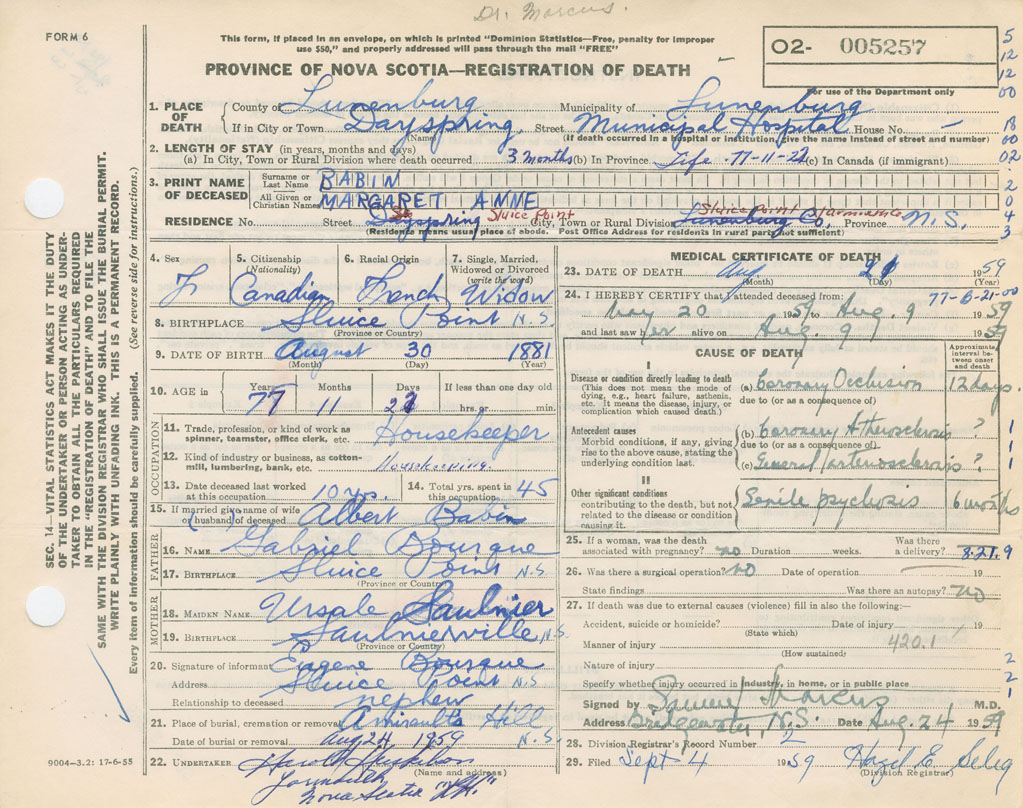 Dr. Marcus.
FORM 6
This form, if placed in an envelope, on which is printed "Dominion Statistics—Free, penalty for improper
use $50," and properly addressed will pass through the mail "FREE"
PROVINCE OF NOVA SCOTIA—REGISTRATION OF DEATH
O2- 005257
For use of the Department only
5
12
12
00
18
00
02
2
0
4
3
SEC. 14—VITAL STATISTICS ACT MAKES IT THE DUTY
OF THE UNDERTAKER OR PERSON ACTING AS UNDER-
TAKER TO OBTAIN ALL THE PARTICULARS REQUIRED
IN THE "REGISTRATION OF DEATH" AND TO FILE THE
SAME WITH THE DIVISION REGISTRAR WHO SHALL ISSUE THE BURIAL PERMIT.
WRITE PLAINLY WITH UNFADING INK. THIS IS A PERMANENT RECORD.
Every item of information should be carefully supplied. (See reverse side for instructions.)
1. PLACE OF DEATH County of Lunenburg Municipality of Lunenburg
If in City or Town Dayspring, Street Municipal Hospital House No. —
(Name) (If death occurred in a hospital or institution, give the name instead of street and number)
2. LENGTH OF STAY (in years, months and days)
(a) In City, Town or Rural Division where death occurred 3 months (b) In Province Life 77-11-22 (c) In Canada (if immigrant)
3. PRINT NAME OF DECEASED Surname or Last Name BABIN
All Given or Christian Names MARGARET ANNE
RESIDENCE No. Street Dayspring Sluice Point City, Town or Rural Division Lunenburg Co. Sluice Point Yarmouth Co Province N.S.
(Residence means usual place of abode. Post Office Address for residents in rural parts not sufficient)
4. Sex F
5. Citizenship (Nationality) Canadian
6. Racial Origin French
7. Single, Married, Widowed or Divorced (write the word) Widow
8. BIRTHPLACE Sluice Point N.S.
(Province or Country)
9. DATE OF BIRTH August 30 1881
(Month) (Day) (Year)
10. AGE in Years 77 Months 11 Days 22 If less than one day old hrs. or min.
OCCUPATION
11. Trade, profession, or kind of work as spinner, teamster, office clerk, etc. Housekeeper
12. Kind of industry or business, as cotton-mill, lumbering, bank, etc. Housekeeping.
13. Date deceased last worked at this occupation 10 yrs.
14. Total yrs. spent in this occupation 45
15. If married give name of wife or husband of deceased Albert Babin
FATHER
16. NAME Gabriel Bourque
17. BIRTHPLACE Sluice Point N.S.
(Province or Country)
MOTHER
18. MAIDEN NAME Ursale Saulnier
19. BIRTHPLACE Saulnierville N.S.
(Province or Country)
20. Signature of informant Eugene Bourque
Address Sluice Point N.S
Relationship to deceased nephew
21. Place of burial, cremation or removal Amiraults Hill
Date of burial or removal Aug 24 1959 N.S.
22. UNDERTAKER Harold
(Name and address)
Yarmouth
Nova Scotia "H.H."
9004—3.2: 17-6-55
MEDICAL CERTIFICATE OF DEATH
23. DATE OF DEATH Aug 21 1959
(Month) (Day)
77-6-21-00
24. I HEREBY CERTIFY that I attended deceased from:
May 20 1959 to Aug. 9 1959
and last saw her alive on Aug. 9 1959
CAUSE OF DEATH
Approximate interval between onset and death
I
Disease or condition directly leading to death
(This does not mean the mode of dying, e.g., heart failure, asthenia, etc. It means the disease, injury, or complication which caused death.)
(a) Coronary Occlusion 12 days.
due to (or as a consequence of)
Antecedent causes
Morbid conditions, if any, giving rise to the above cause, stating the underlying condition last.
(b) Coronary Atherosclerosis ? 1
due to (or as a consequence of)
(c) General arteriosclerosis ? 1
II
Other significant conditions contributing to the death, but not related to the disease or condition causing it.
Senile psychosis 6 months
25. If a woman, was the death associated with pregnancy? no Duration weeks. Was there a delivery? 8.21.9
26. Was there a surgical operation? NO Date of operation — 19
State findings Was there an autopsy? no
27. If death was due to external causes (violence) fill in also the following:—
Accident, suicide or homicide? Date of injury 19
(State which)
Manner of injury 420.1
(How sustained)
Nature of injury
Specify whether injury occurred in industry, in home, or in public place
2
2
1
Signed by Samuel Marcus M.D.
Address Bridgewater, N.S. Date Aug. 24 1959
28. Division Registrar's Record Number 2
29. Filed Sept 4 1959 Hazel E Selig
(Division Registrar)